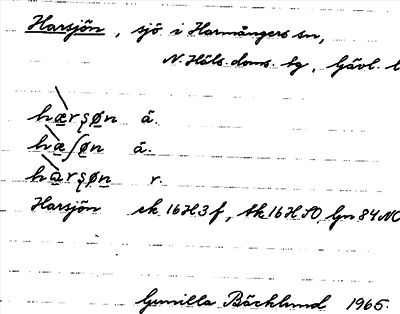 Harsjön, sjö i Harmångers sn,
N. Häls. doms. bg, Gävl. l
hærşøn ä.
hæʃøn ä.
harşøn r.
Harsjön ek 16H3f, tk 16H SO, Gn 84 NO
Gunilla Bäcklund 1965.